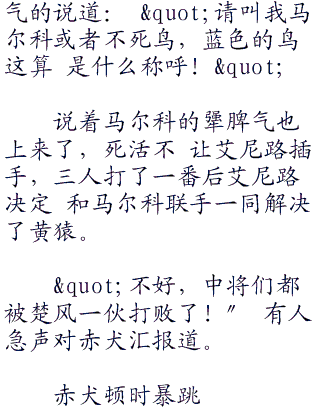 气的说道： &quot;请叫我马
尔科或者不死鸟，蓝色的鸟
这算 是什么称呼！&quot;
说着马尔科的犟脾气也
上来了，死活不 让艾尼路插
手，三人打了一番后艾尼路
决定 和马尔科联手一同解决
了黄猿。
&quot;不好，中将们都
被楚风一伙打败了！” 有人
急声对赤犬汇报道。
赤犬顿时暴跳